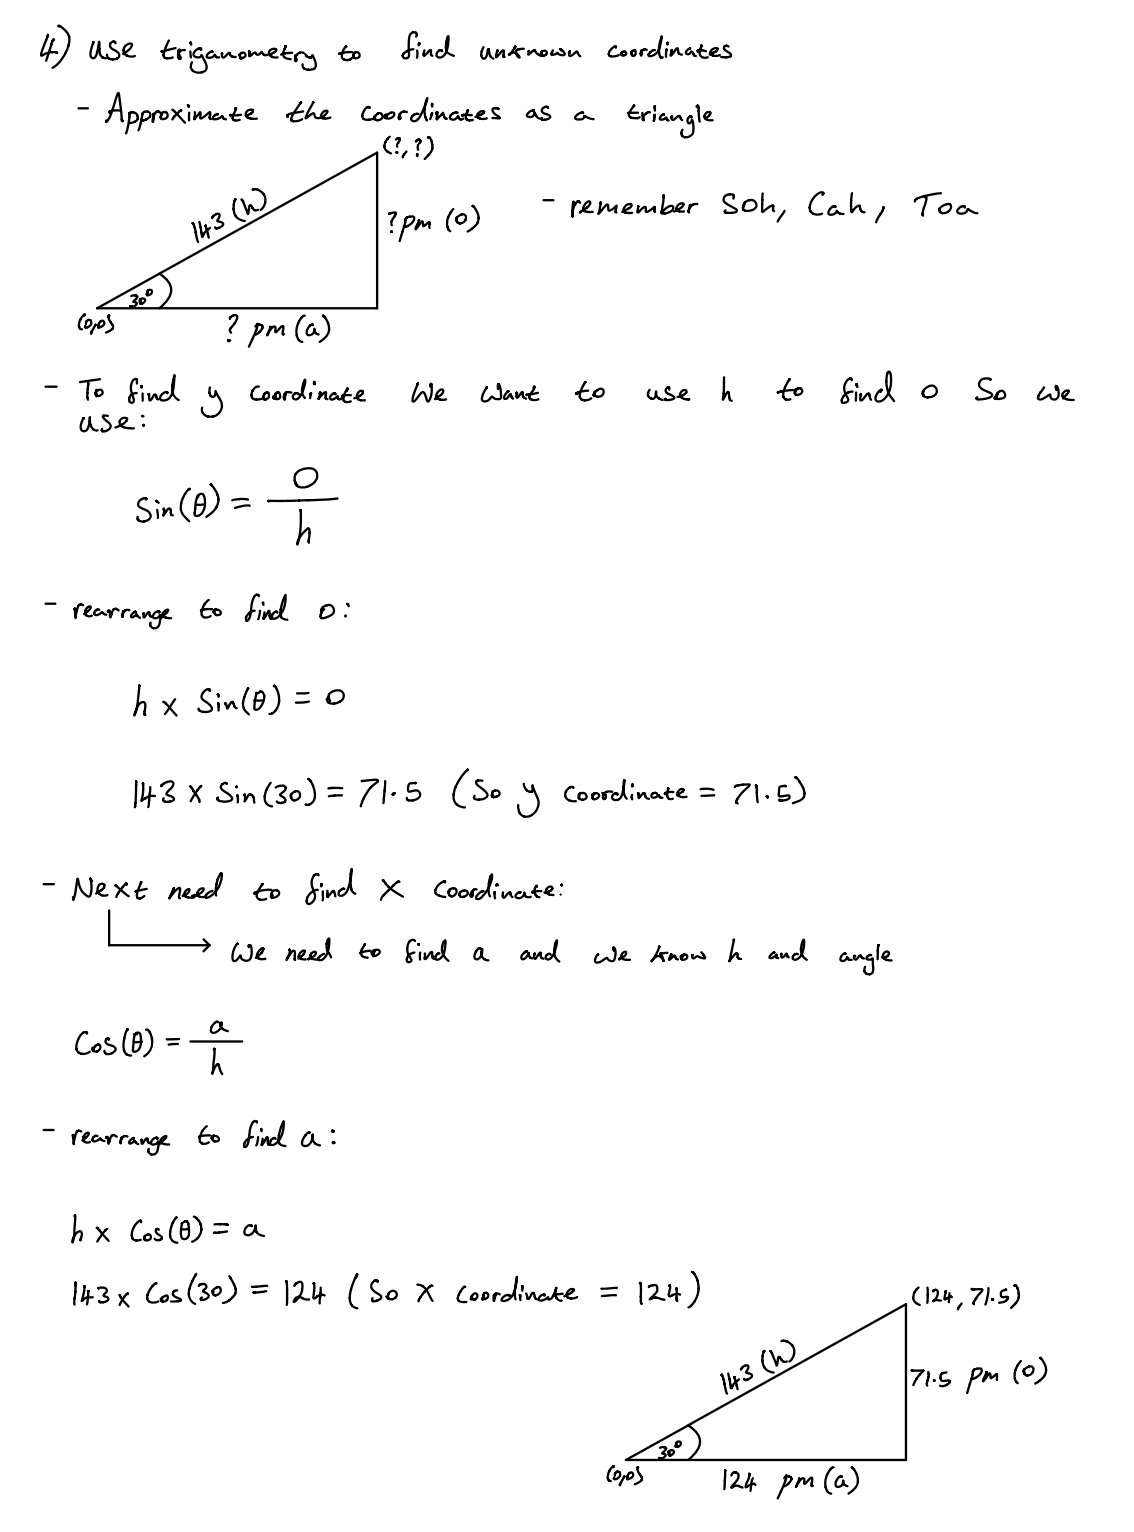 4) use triganometry to find unknown coordinates
- Approximate the coordinates as a triangle
(?,?)
143 (h)
?pm (o)
- remember Soh, Cah, Toa
30°
(0,0)
? pm (a)
- To find y coordinate we want to use h to find o So we
use:
Sin(θ) = o/h
- rearrange to find o:
h x Sin(θ) = o
143 x Sin(30) = 71.5 (So y coordinate = 71.5)
- Next need to find x coordinate:
we need to find a and we know h and angle
Cos(θ) = a/h
- rearrange to find a:
h x Cos(θ) = a
143 x Cos(30) = 124 (So x coordinate = 124)
(124, 71.5)
143 (h)
71.5 pm (o)
30°
(0,0)
124 pm (a)